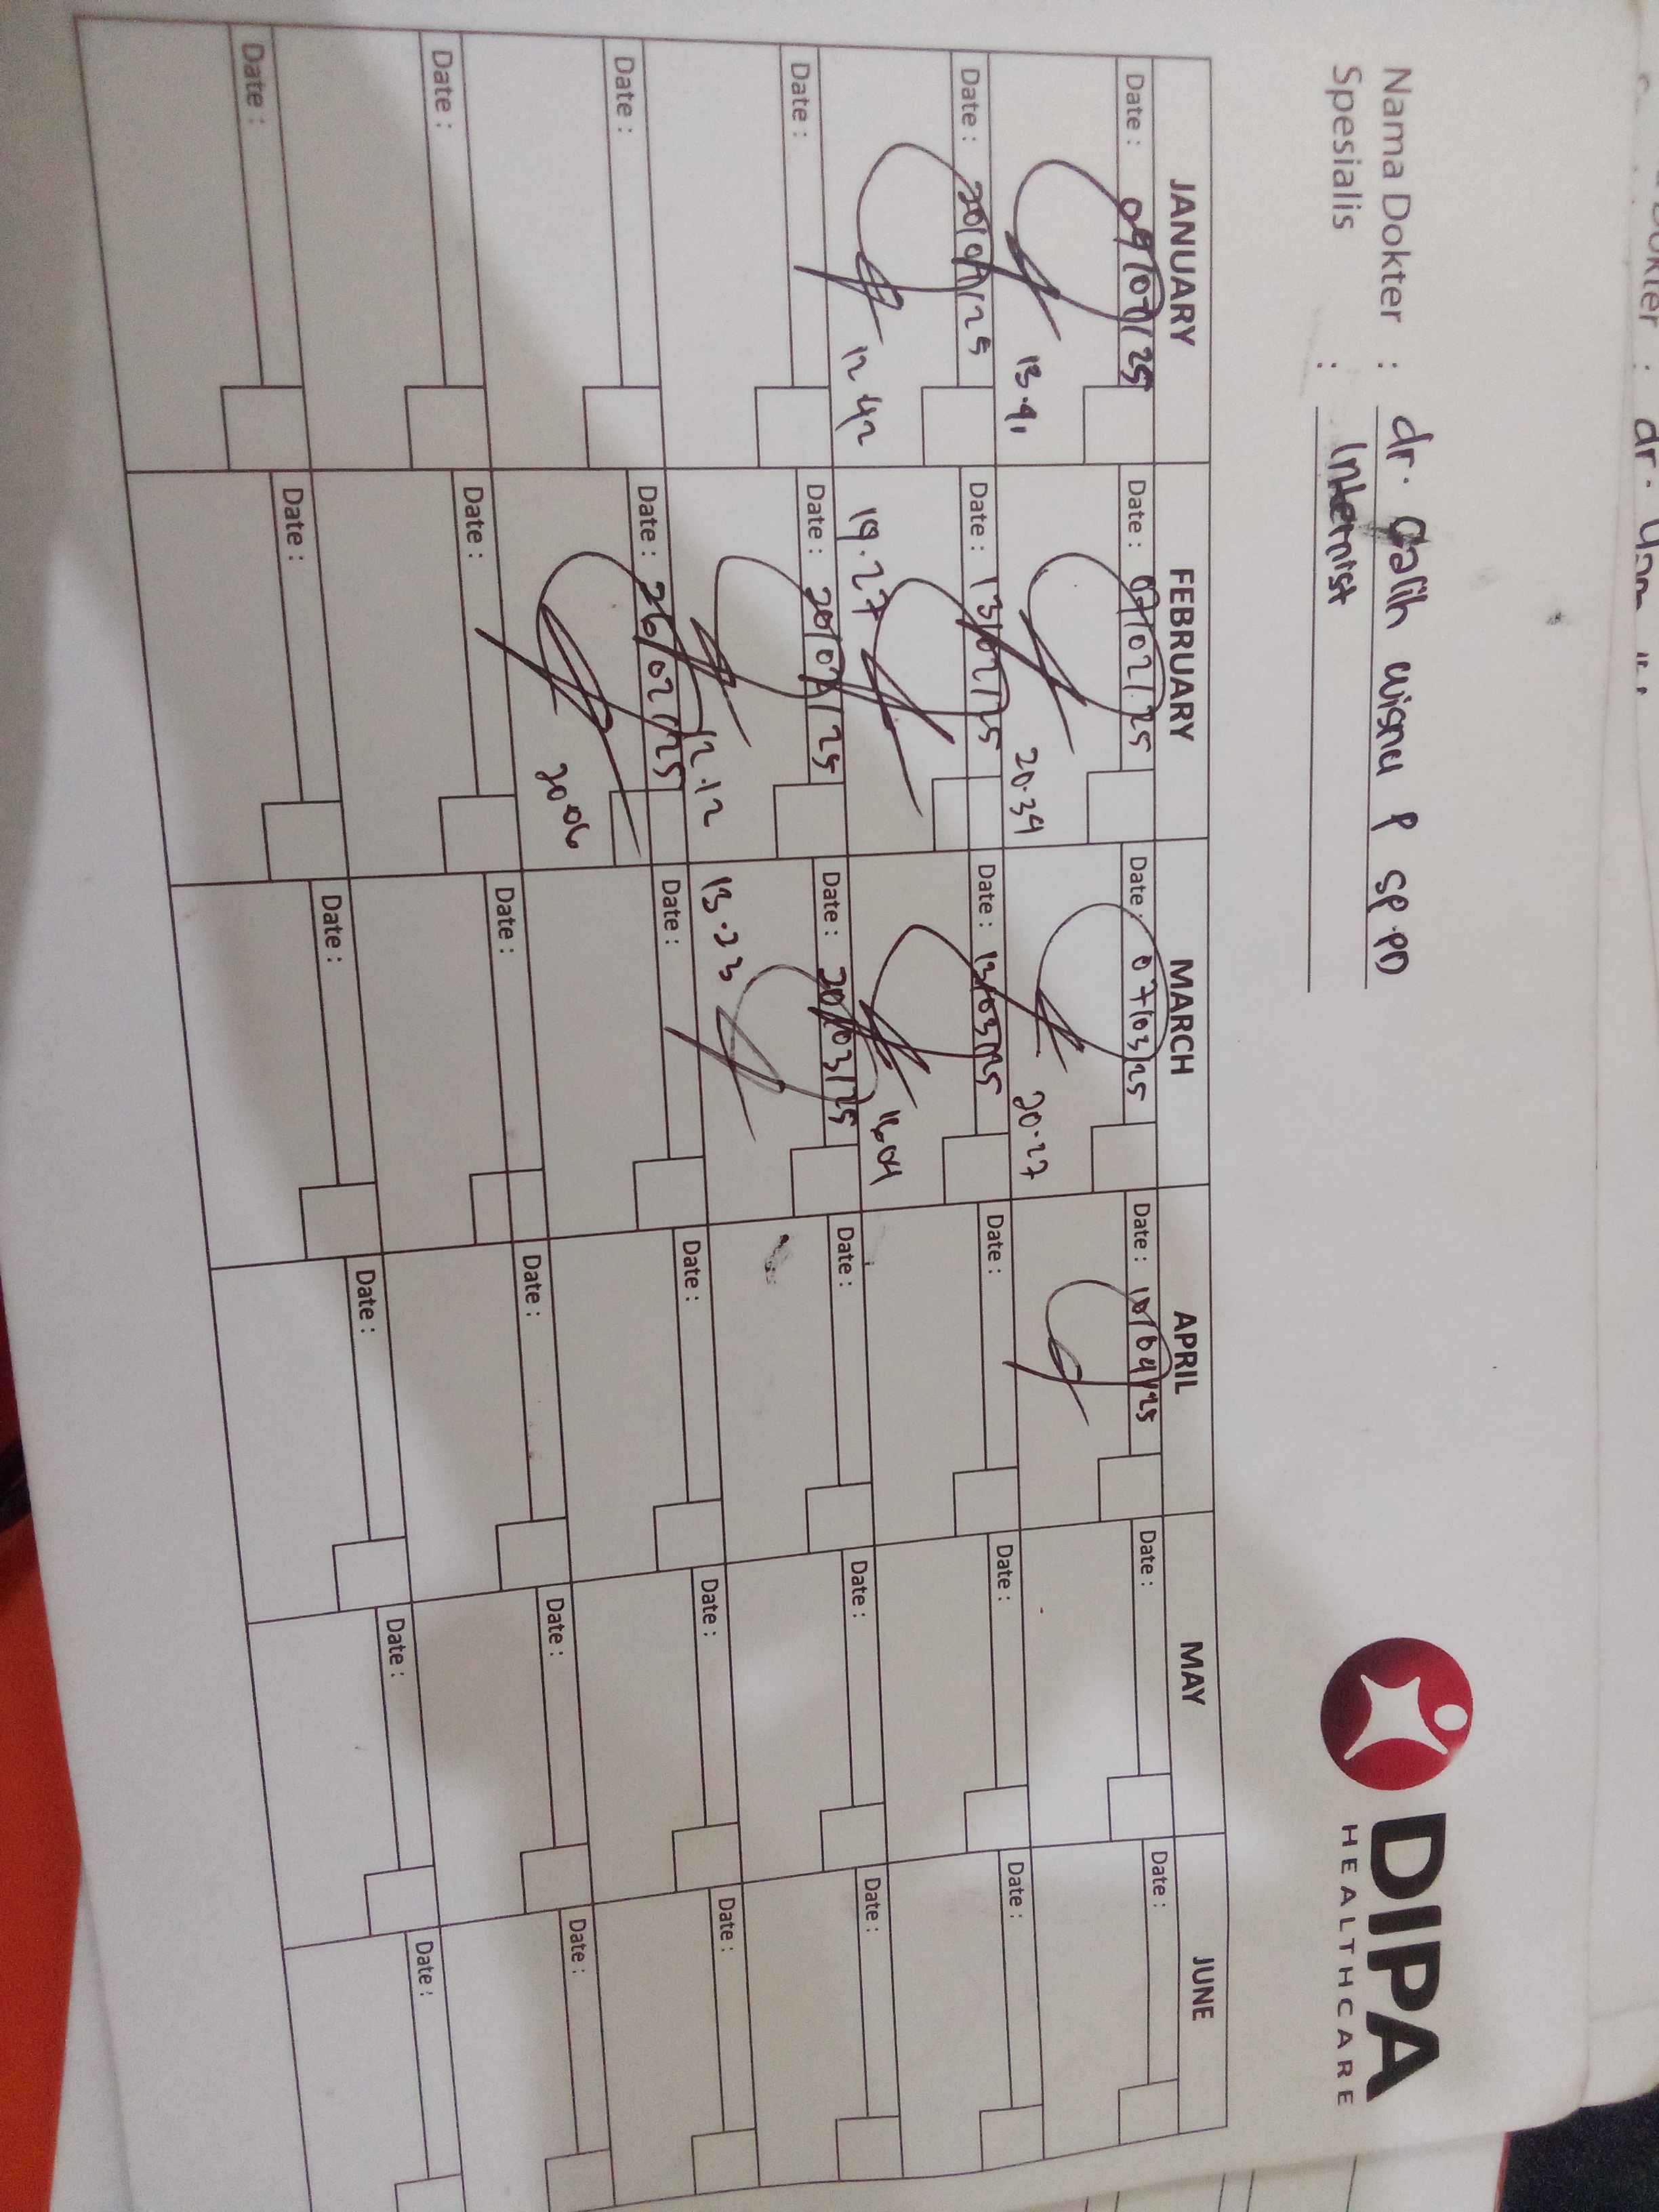 DIPA
HEALTHCARE
Nama Dokter : dr. Galih wisnu P SP.PD
Spesialis : Internist
JANUARY FEBRUARY MARCH APRIL MAY JUNE
Date : 09/01/25 Date : 07/02/25 Date : 07/03/25 Date : 10/04/25 Date : Date :
13.41 20.34 20.27
Date : 20/01/25 Date : 13/02/25 Date : 13/03/25 Date : Date : Date :
12 42 19.27
Date : Date : 20/02/25 Date : 20/03/25 Date : Date : Date :
12.12 13.23
Date : Date : 26/02/25 Date : Date : Date : Date :
20.06
Date : Date : Date : Date : Date : Date :
Date : Date : Date : Date : Date : Date :